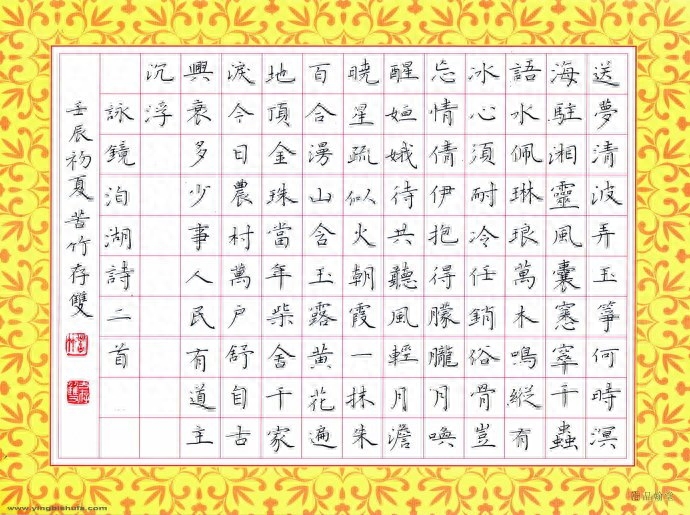 送夢清波弄玉箏何時溟
海駐湘靈風囊窸窣千蟲
語水佩琳琅萬木鳴縱有
冰心須耐冷任銷俗骨豈
忘情倩伊抱得朦朧月喚
醒姮娥待共聽風輕月澹
曉星疏似火朝霞一抹朱
百合漫山含玉露黄花遍
地頂金珠當年柴舍千家
淚今日農村萬户舒自古
興衰多少事人民有道主
沉浮
詠鏡泊湖詩二首
壬辰初夏苦竹存雙
www.yingbishufa.com